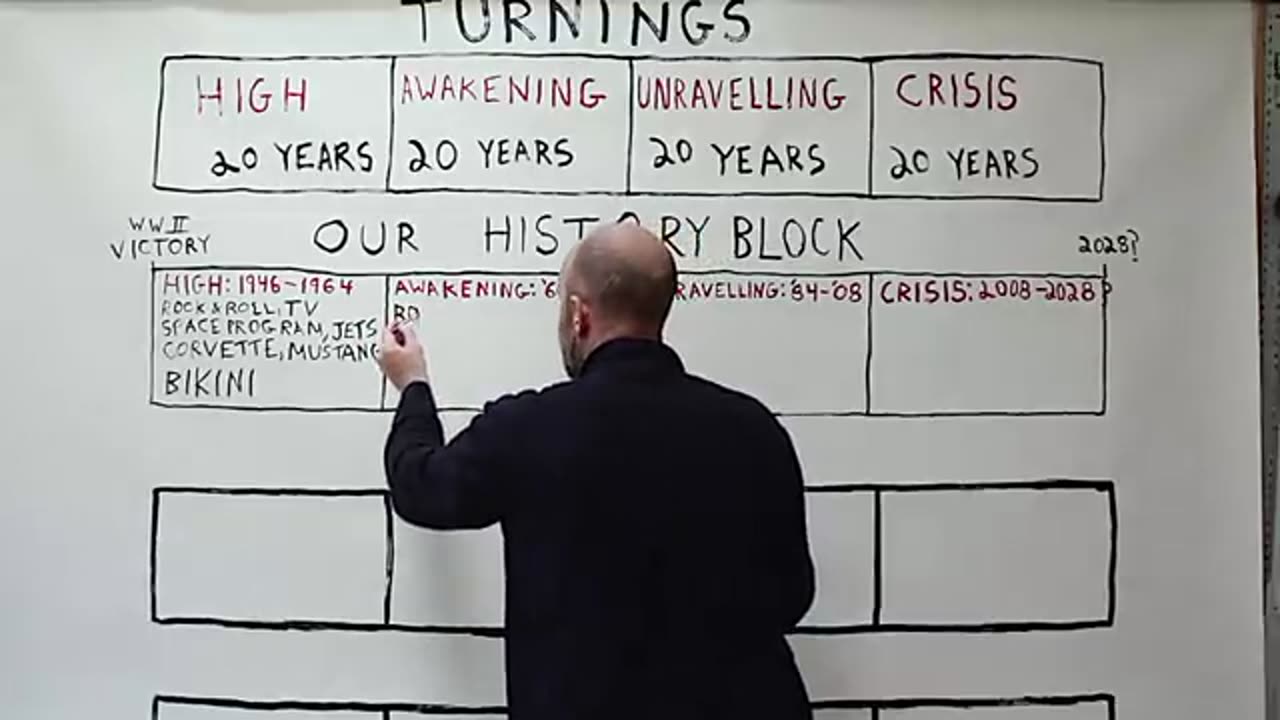 TURNINGS
HIGH AWAKENING UNRAVELLING CRISIS
20 YEARS 20 YEARS 20 YEARS 20 YEARS
WWII
VICTORY
OUR HISTORY BLOCK
2028?
HIGH: 1946-1964
ROCK & ROLL, TV
SPACE PROGRAM, JETS
CORVETTE, MUSTANG
BIKINI
AWAKENING: '6
RAVELLING: '84-'08
CRISIS: 2008-2028?